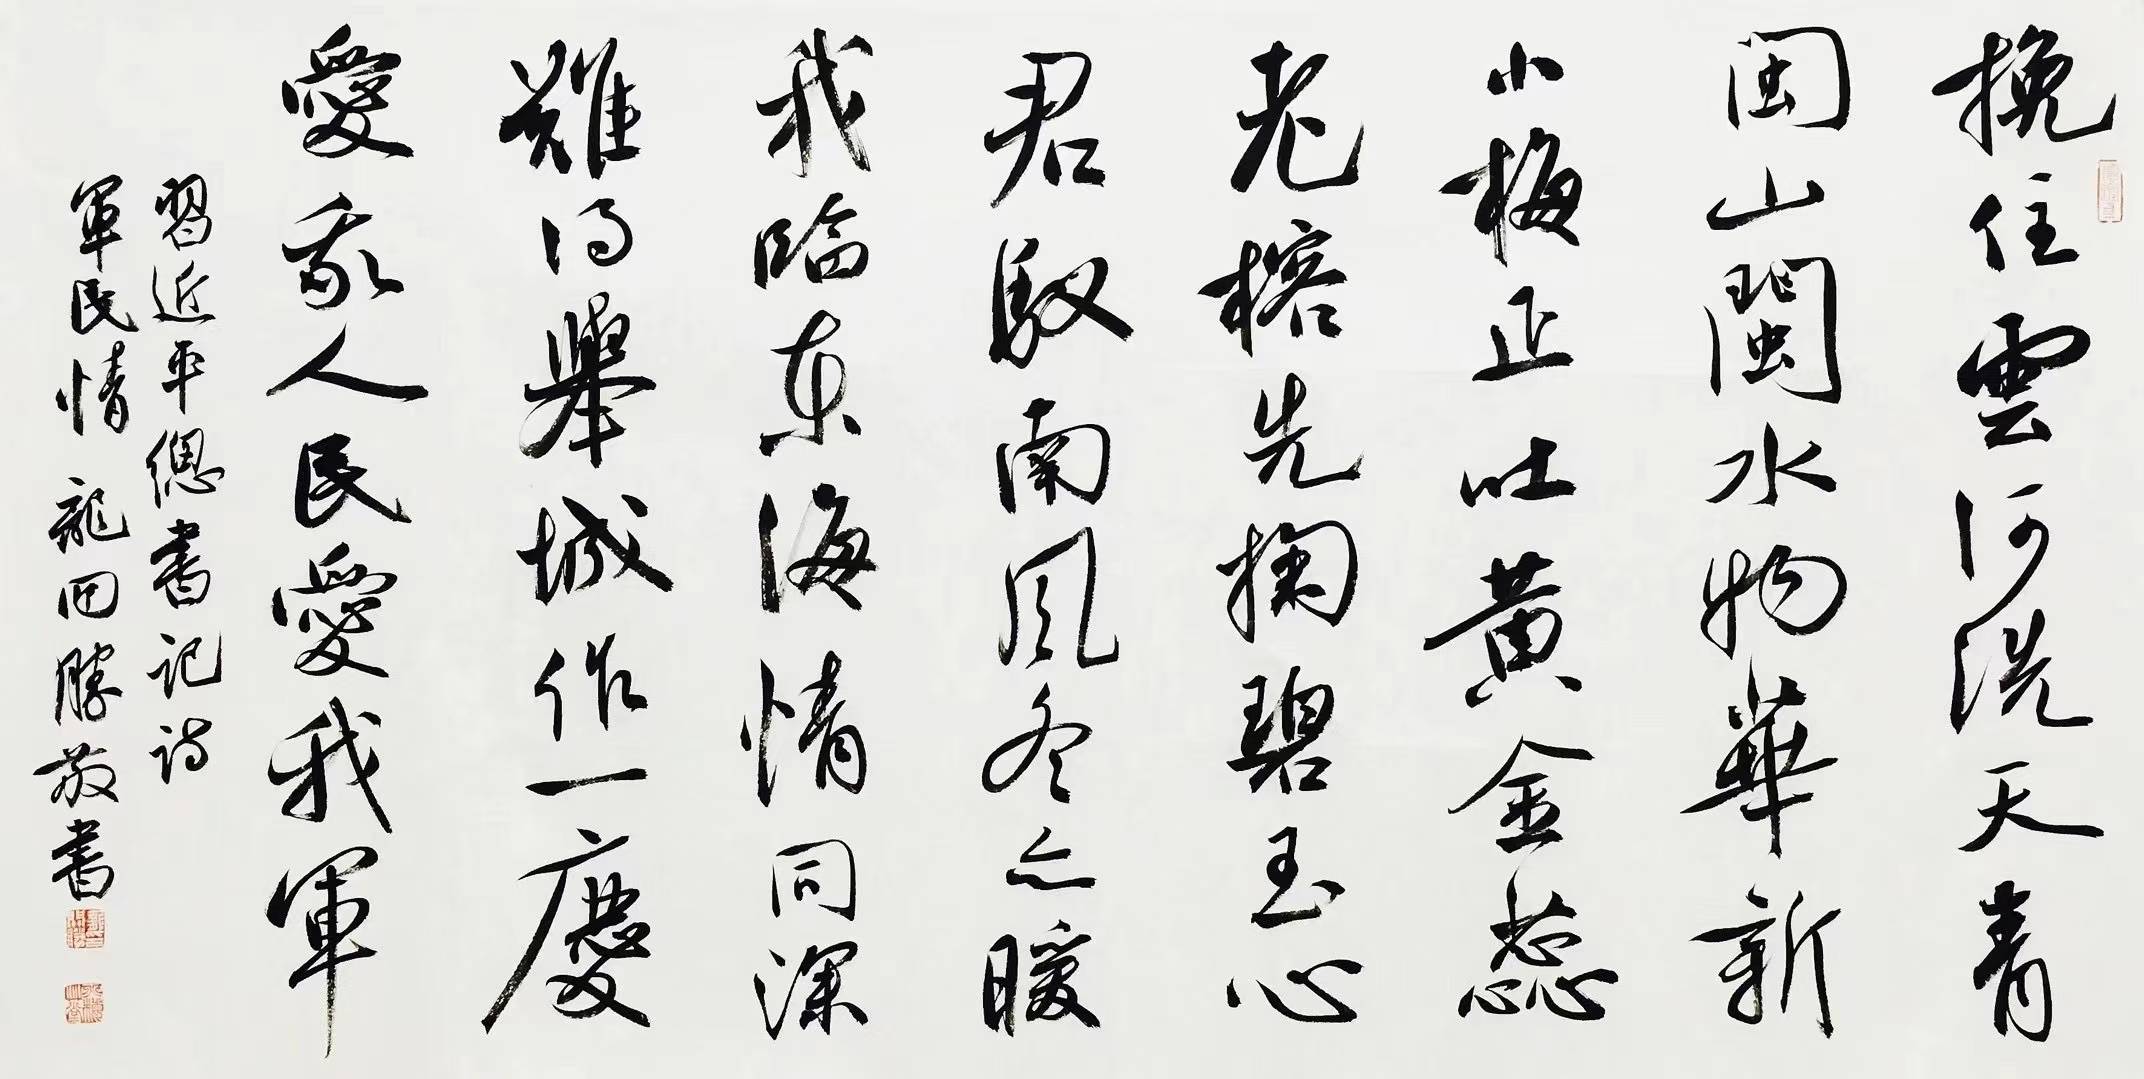 挽住雲河洗天青
閩山閩水物華新
小梅正吐黄金蕊
老榕先掬碧玉心
君馭南風冬亦暖
我臨東海情同深
難得舉城作一慶
愛我人民愛我軍
習近平總書記詩
軍民情 龍回勝敬書